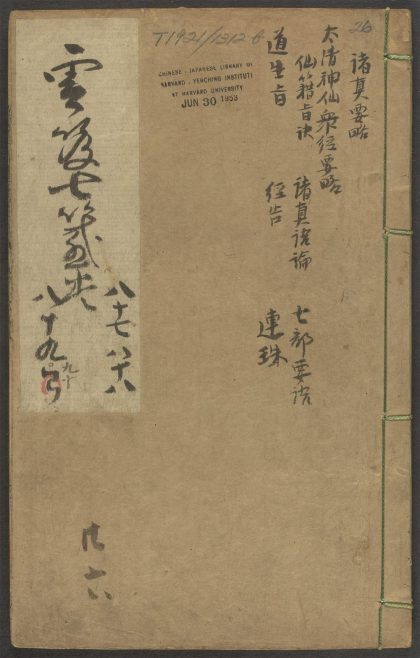 26
諸真要略
太清神仙衆經要略
仙籍旨訣 諸真語論 七部要語
道生旨 經告 連珠
T1921/1312
CHINESE - JAPANESE LIBRARY OF
HARVARD - YENCHING INSTITUTE
AT HARVARD UNIVERSITY
JUN 30 1953
雲笈七籤卷
八十七 八十八
八十九
九十
廿六